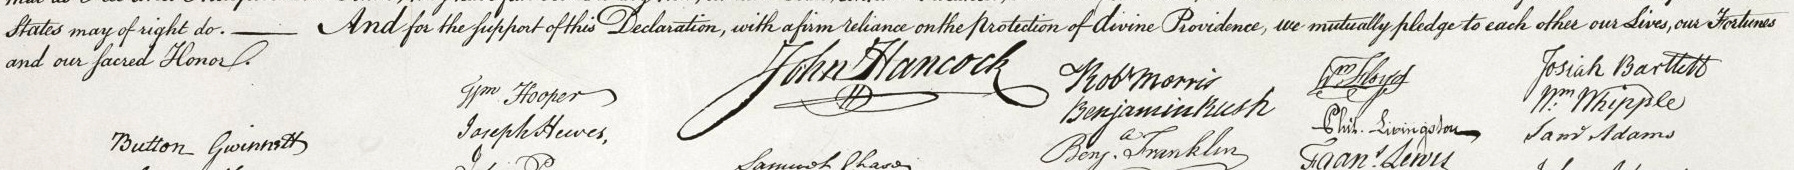 States may of right do. — And for the support of this Declaration, with a firm reliance on the protection of divine Providence, we mutually pledge to each other our Lives, our Fortunes
and our sacred Honor.
John Hancock
Button Gwinnett
Wm Hooper
Joseph Hewes,
Samuel Chase
Robt Morris
Benjamin Rush
Benja. Franklin
Wm Floyd
Phil. Livingston
Frans. Lewis
Josiah Bartlett
Wm Whipple
Saml Adams